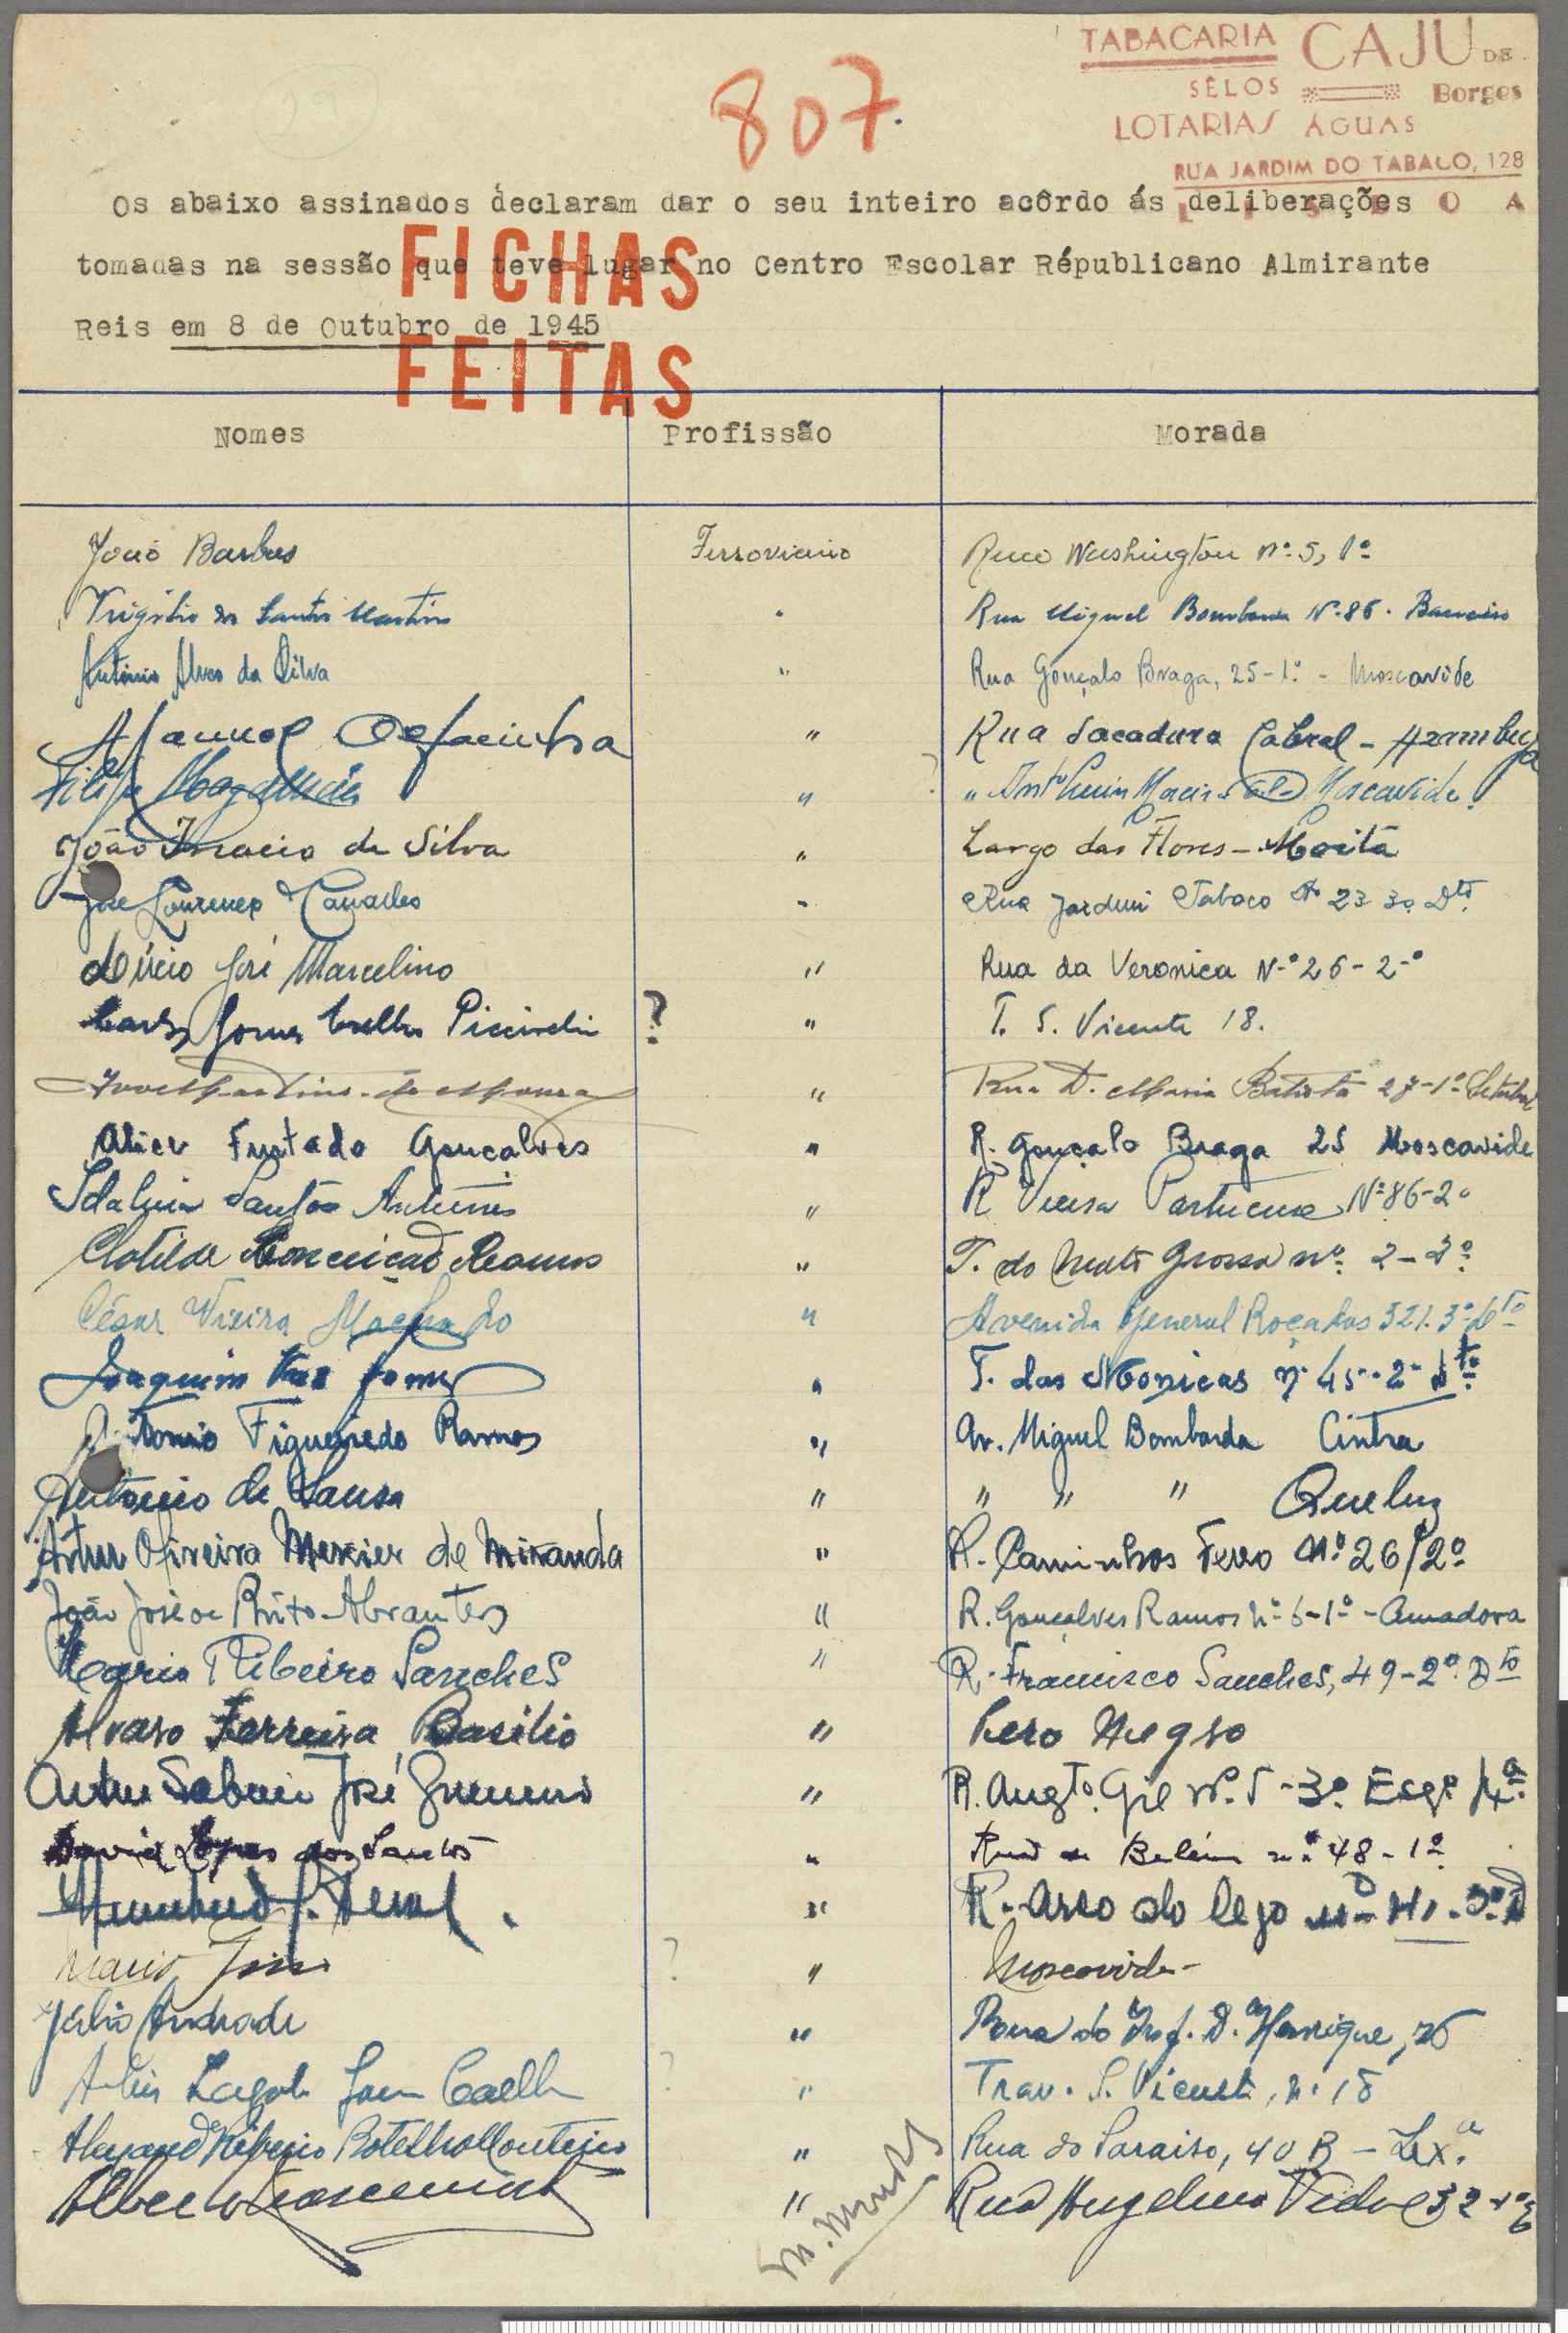 TABACARIA CAJU DE
SÊLOS Borges
LOTARIAS ÁGUAS
RUA JARDIM DO TABACO, 128
29
807.
Os abaixo assinados declaram dar o seu inteiro acôrdo ás deliberações
tomadas na sessão que teve lugar no Centro Escolar Républicano Almirante
Reis em 8 de Outubro de 1945
FICHAS
FEITAS
Nomes Profissão Morada
João Barbas Ferroviario Rua Washington nº 5, 1º
dos Santos Martins " Rua Miguel Bombarda Nº 86. Barreiro
António Alves da Silva " Rua Gonçalo Braga, 25-1º - Moscavide
Manuel " Rua Sacadura Cabral - Azambuja
Filipe Magalhães " " Moscavide
João Inacio da Silva " Largo das Flores - Moita
José Lourenço " Rua Jardim Tabaco Nº 23 3º Dtº
Lúcio José Marcelino " Rua da Veronica Nº 26-2º
Carlos Gomes Coelho ? " T. S. Vicente 18.
Martins de Moura " Rua D. Maria Batista 27-1º Setubal
Alice Furtado Gonçalves " R. Gonçalo Braga 25 Moscavide
Idalina Santos Antunes " R Vieira Portuense Nº 86-2º
Clotilde Conceicão Ramos " T. do Mato Grosso nº 2-2º
César Vieira Machado " Avenida General Roçadas 321. 3º dtº
Joaquim Vaz Gomes " T. das Monicas nº 45-2º dtº
António Figueiredo Ramos " Av. Miguel Bombarda Cintra
António de Sousa " " " " Queluz
Artur Oliveira Mexier de Miranda " R. Caminhos Ferro Nº 26/2º
João José de Brito Abrantes " R. Gonçalves Ramos nº 6-1º - Amadora
Mario Ribeiro Sanches " R. Francisco Sanches, 49-2º Dto
Alvaro Ferreira Basilio " Pero Negro
Artur José " R. Augto. Gil Nº 5-3º Esqº
David Lopes dos Santos " Rua de Belém nº 48-1º
" R. Arco do Cego
Mario ? " Moscavide-
Julio Andrade " Rua do Inf. D. Henrique, 26
Coelho ? " Trav. S. Vicente, nº 18
Ribeiro Botelho Monteiro " Rua do Paraiso, 40 B - Lxª
Alberto Nascimento " Rua Angelina Vidal 32